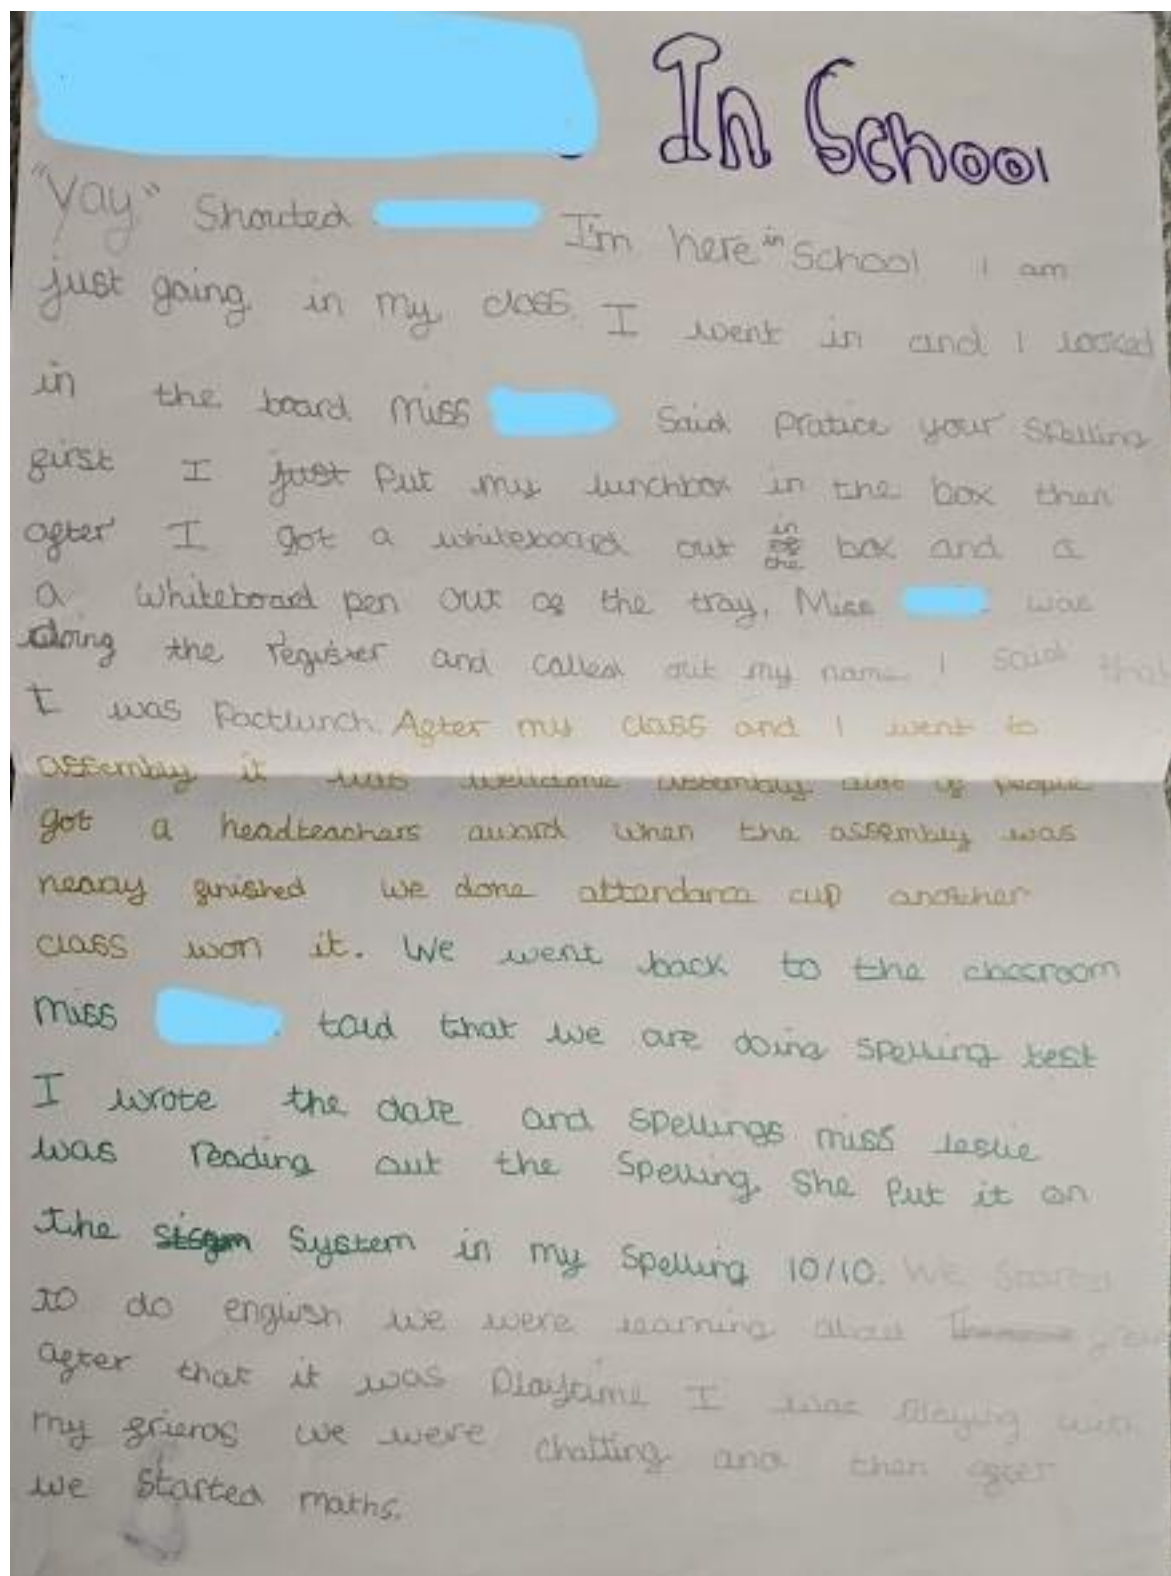 In School
"Yay" Shouted I'm here in School I am
just going in my class. I went in and I looked
in the board. Miss Said Pratice your Spelling
first I just Put my lunchbox in the box then
after I got a whiteboard out in of the box and a
a Whiteboard pen out of the tray, Miss was
doing the register and called out my name I said that
I was Packlunch. After my class and I went to
assembly it was welldone assembly alot of people
got a headteachers award when the assembly was
neary finished we done attendance cup another
class won it. We went back to the classroom
Miss told that we are doing spelling test
I wrote the date and spellings miss leslie
was reading out the Spelling. She Put it on
the System in my Spelling 10/10. We Started
to do english we were learning about
after that it was Playtime I was Playing with
my friends we were chatting and then after
we Started maths.